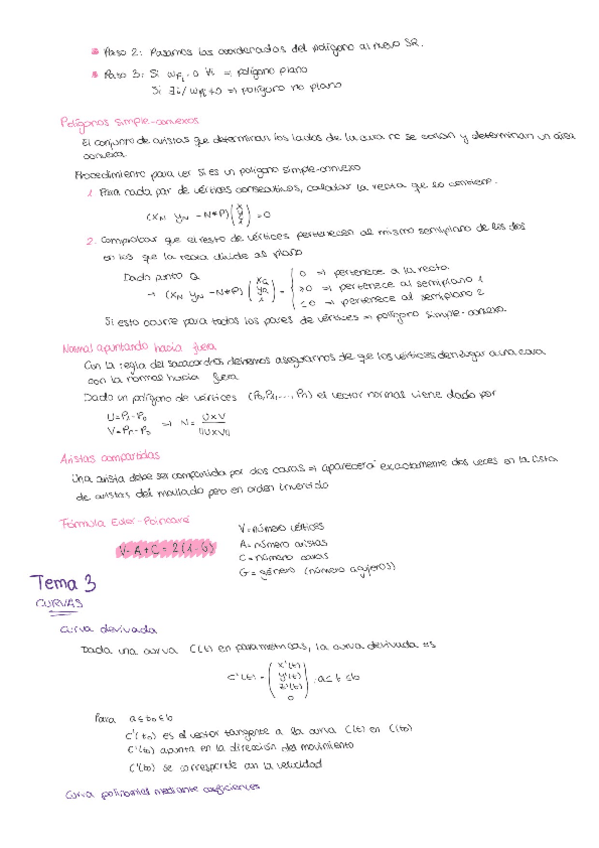 Paso 2: Pasamos las coordenadas del polígono al nuevo SR.
Paso 3: Si wPi = 0 ∀i ⇒ polígono plano
Si ∃i / wPi ≠ 0 ⇒ polígono no plano
Polígonos simple-convexos
El conjunto de aristas que determinan los lados de la cara no se cortan y determinan un área
convexa.
Procedimiento para ver si es un polígono simple-convexo
1. Para cada par de vértices consecutivos, calcular la recta que lo contiene.
(xN yN -N*P) (x y 1) = 0
2. Comprobar que el resto de vértices pertenecen al mismo semiplano de los dos
en los que la recta divide al plano
Dado punto Q
→ (xN yN -N*P) (xQ yQ 1) = { 0 ⇒ pertenece a la recta.
>0 ⇒ pertenece al semiplano 1
<0 ⇒ pertenece al semiplano 2
Si esto ocurre para todos los pares de vértices ⇒ polígono simple-convexo.
Normal apuntando hacia fuera
Con la regla del sacacorchos debemos asegurarnos de que los vértices den lugar a una cara
con la normal hacia fuera
Dado un polígono de vértices (P0, P1, ..., Pn) el vector normal viene dado por
U = P1 - P0
V = Pn - P0 ⇒ N = UxV / ||UxV||
Aristas compartidas
Una arista debe ser compartida por dos caras ⇒ aparecerá exactamente dos veces en la lista
de aristas del mallado pero en orden invertido
Fórmula Euler-Poincaré
V - A + C = 2(1-G)
V = número vértices
A = número aristas
C = número caras
G = género (número agujeros)
Tema 3
CURVAS
Curva derivada
Dada una curva C(t) en paramétricas, la curva derivada es
C'(t) = (x'(t) y'(t) z'(t) 0), a ≤ t ≤ b
Para a ≤ t0 ≤ b
C'(t0) es el vector tangente a la curva C(t) en C(t0)
C'(t0) apunta en la dirección del movimiento
C'(t0) se corresponde con la velocidad
Curva polinomial mediante coeficientes